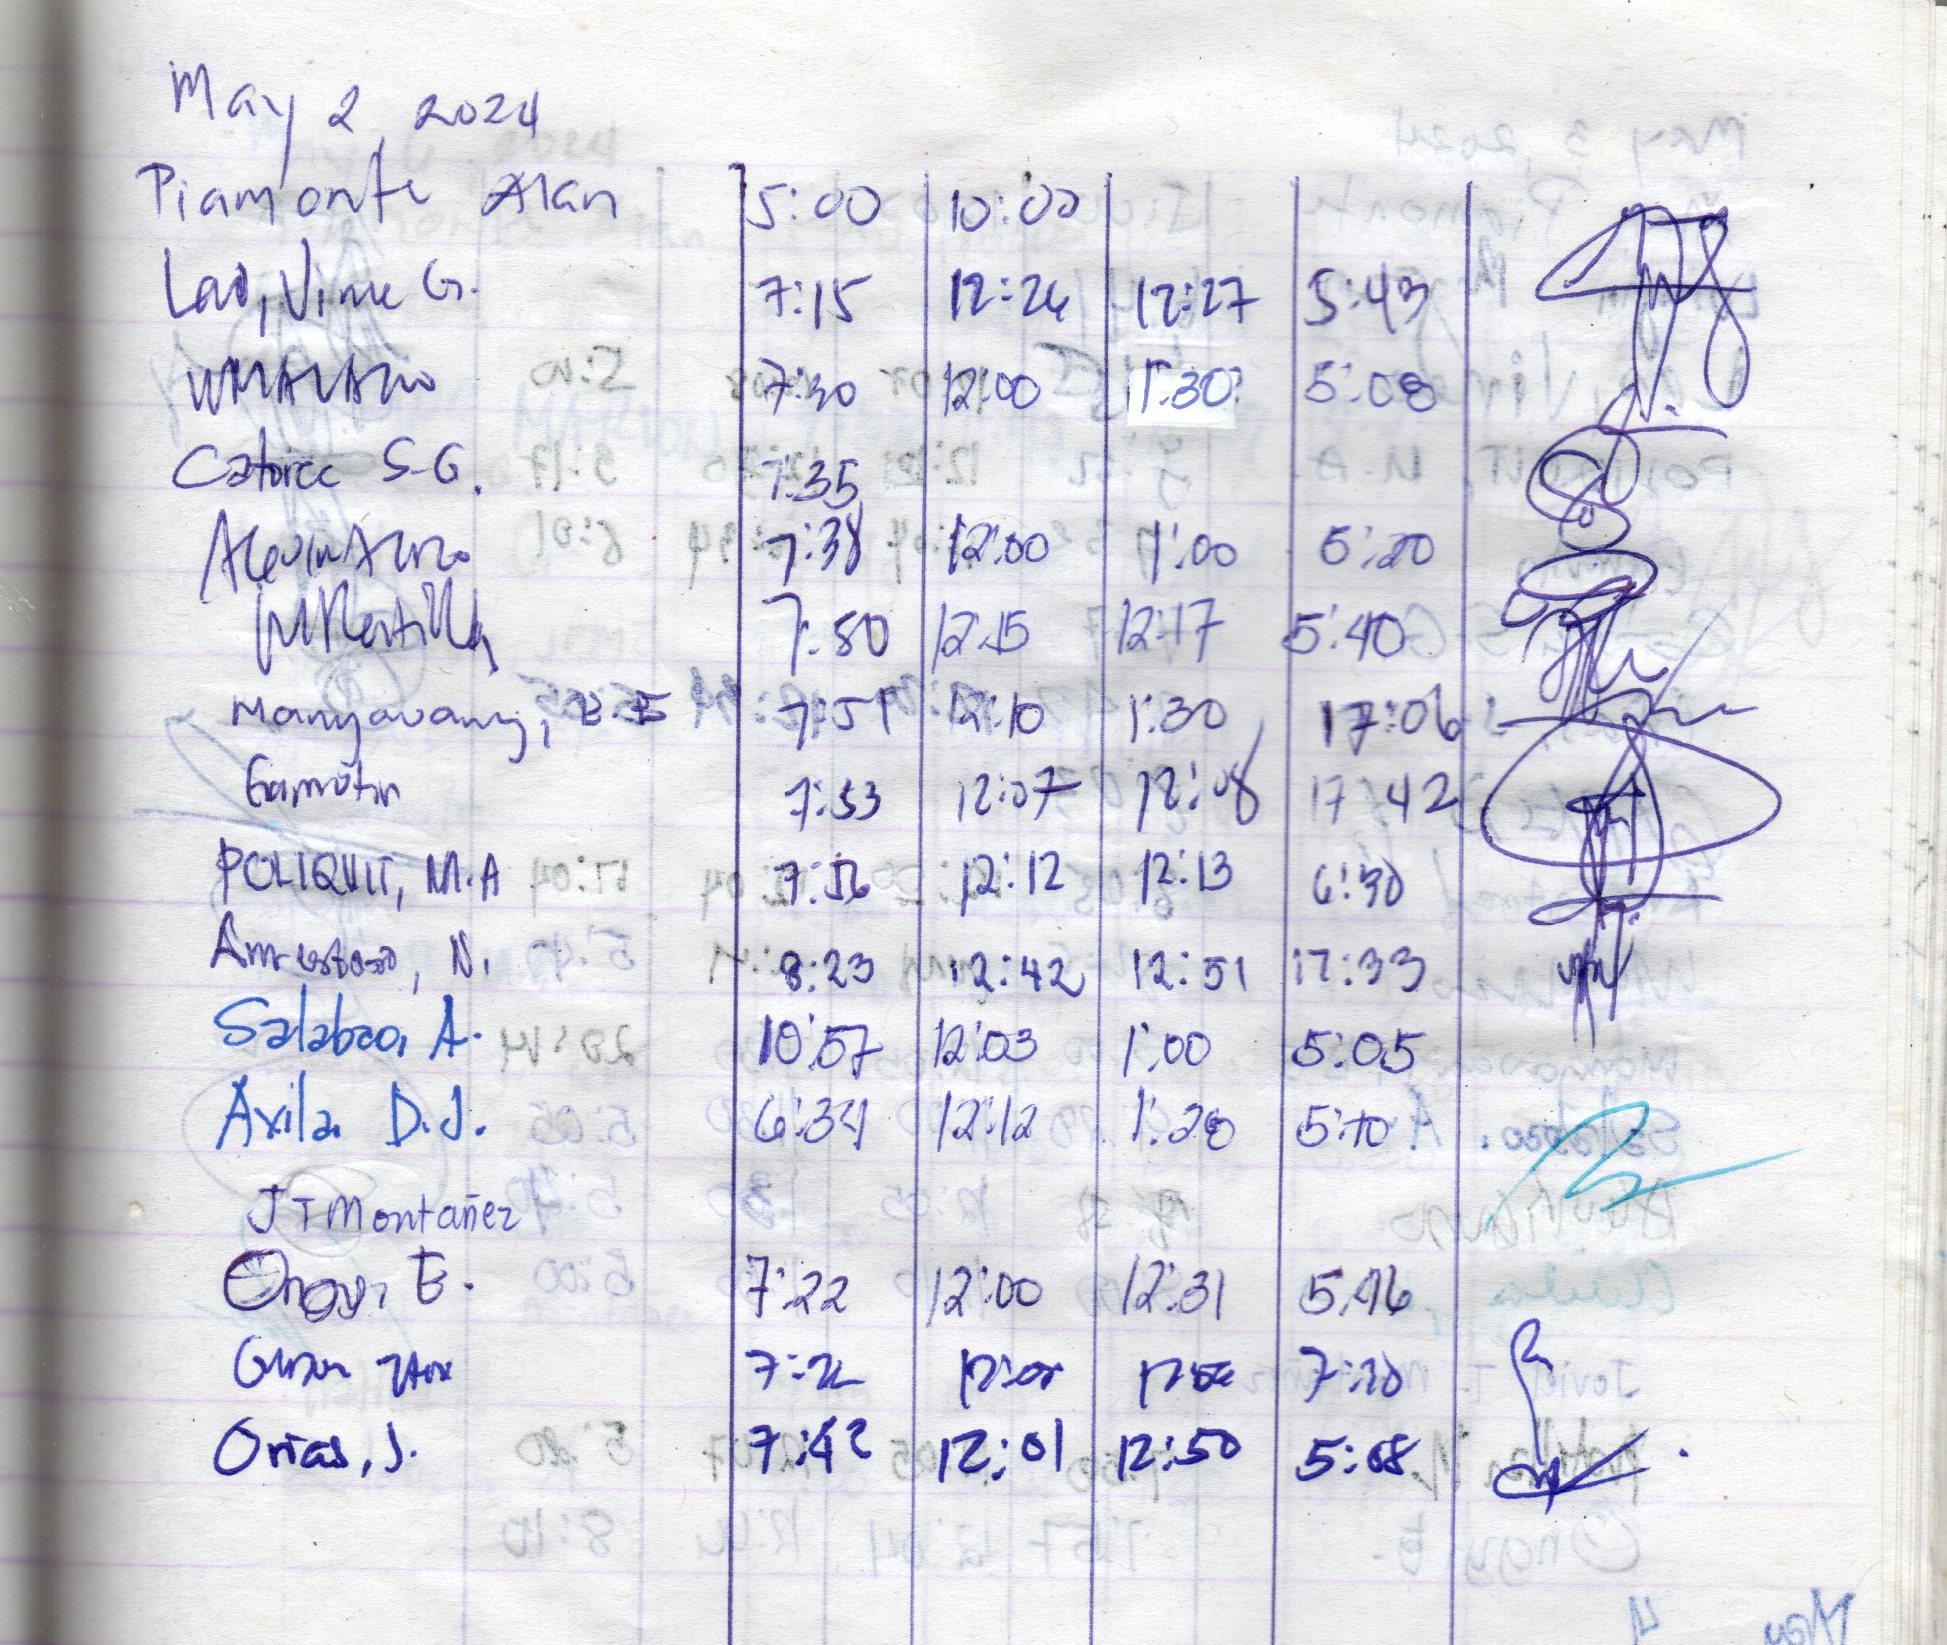 May 2, 2024
Piamonte Alan 5:00 10:00
Lao, Vime G. 7:15 12:26 12:27 5:43
7:30 12:00 1:30 5:08
Catoice S.G. 7:35
7:38 12:00 1:00 5:20
7:50 12:15 12:17 5:40
Manyavany, E.E 7:51 12:10 1:30 17:06
Gamotin 7:53 12:07 12:08 17:42
POLIQUIT, M.A 7:56 12:12 12:13 6:30
N. 8:23 12:42 12:51 17:33
Salabao, A. 10:57 12:03 1:00 5:05
Avila D.J. 6:34 12:12 1:28 5:10
JT Montañez
Ongy, E. 7:22 12:00 12:31 5:46
7:20
Orias, J. 7:42 12:01 12:50 5:08